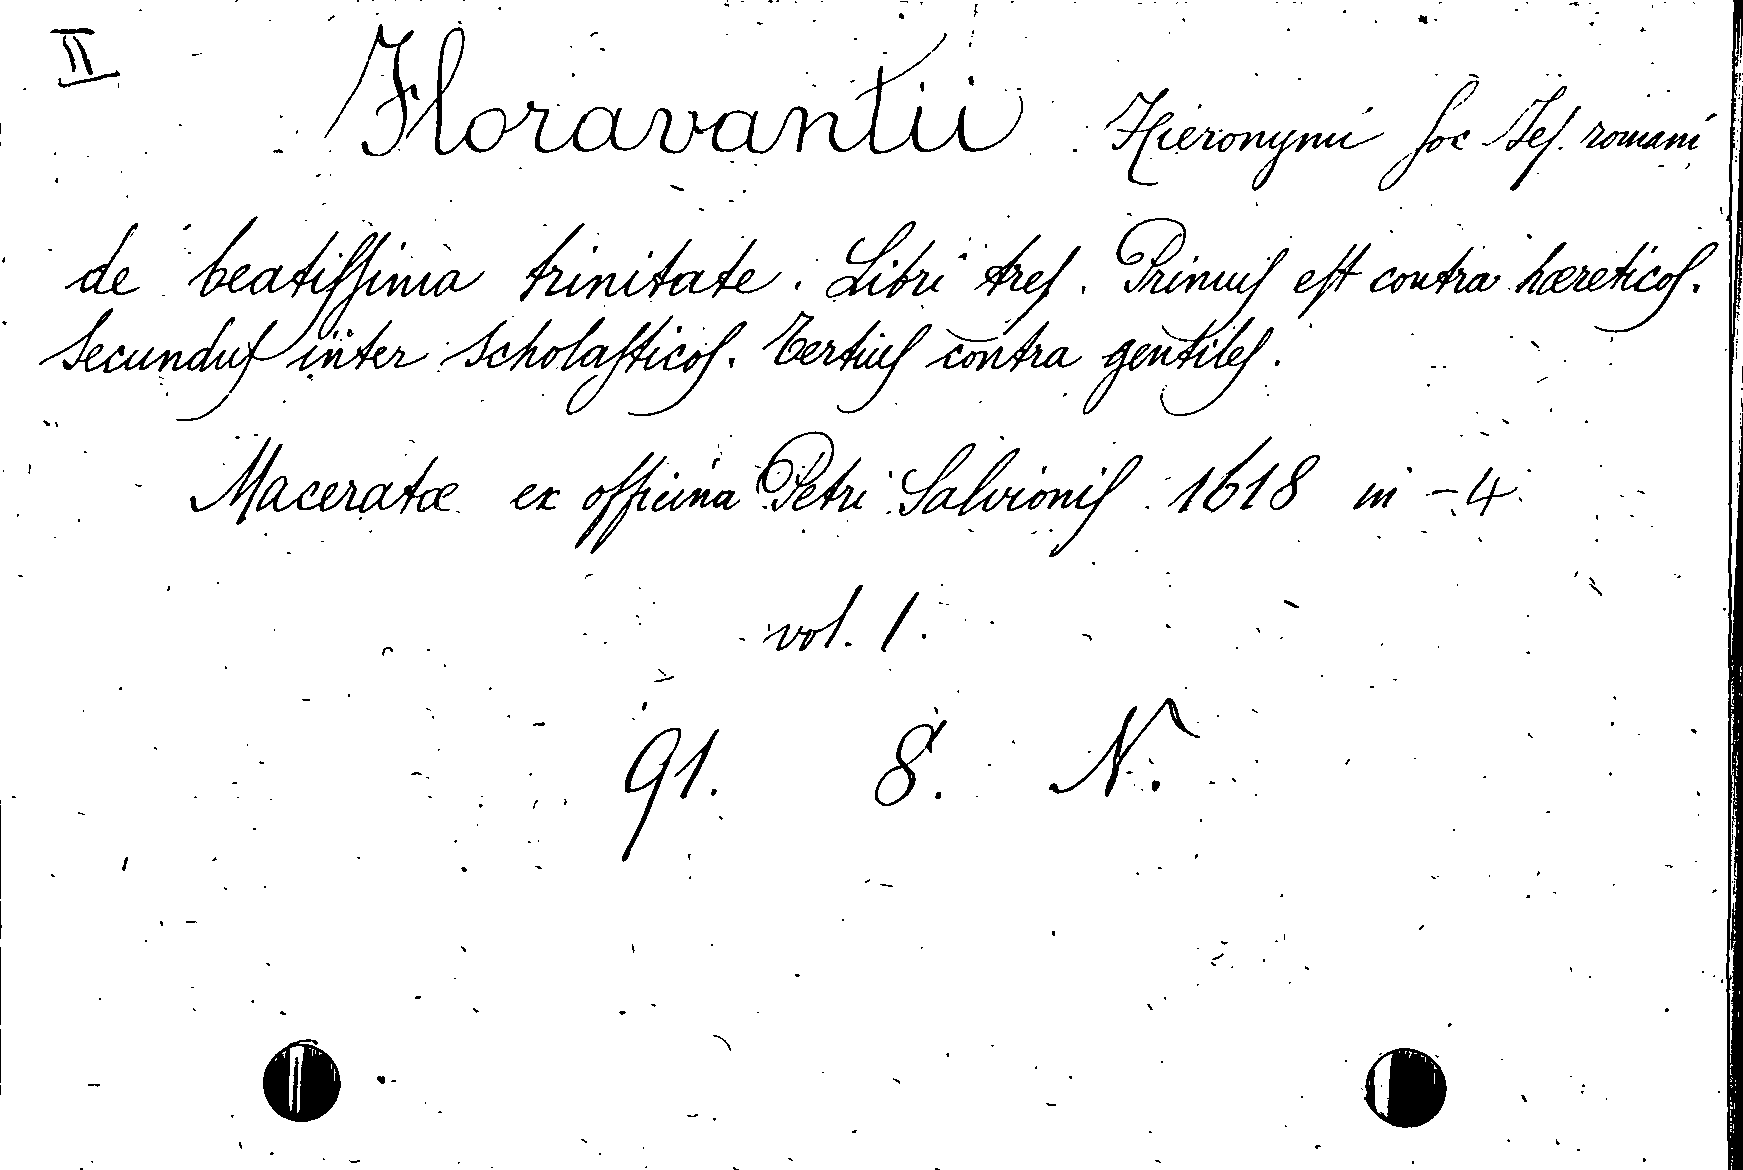 II
Floravantii Hieronymi Soc Jes. romani
de beatissima trinitate. Libri tres. Primus est contra hæreticos.
Secundus inter scholasticos. Tertius contra gentiles.
Maceratæ ex officina Petri Salvionis 1618 in -4.
vol. 1.
91. 8. N.